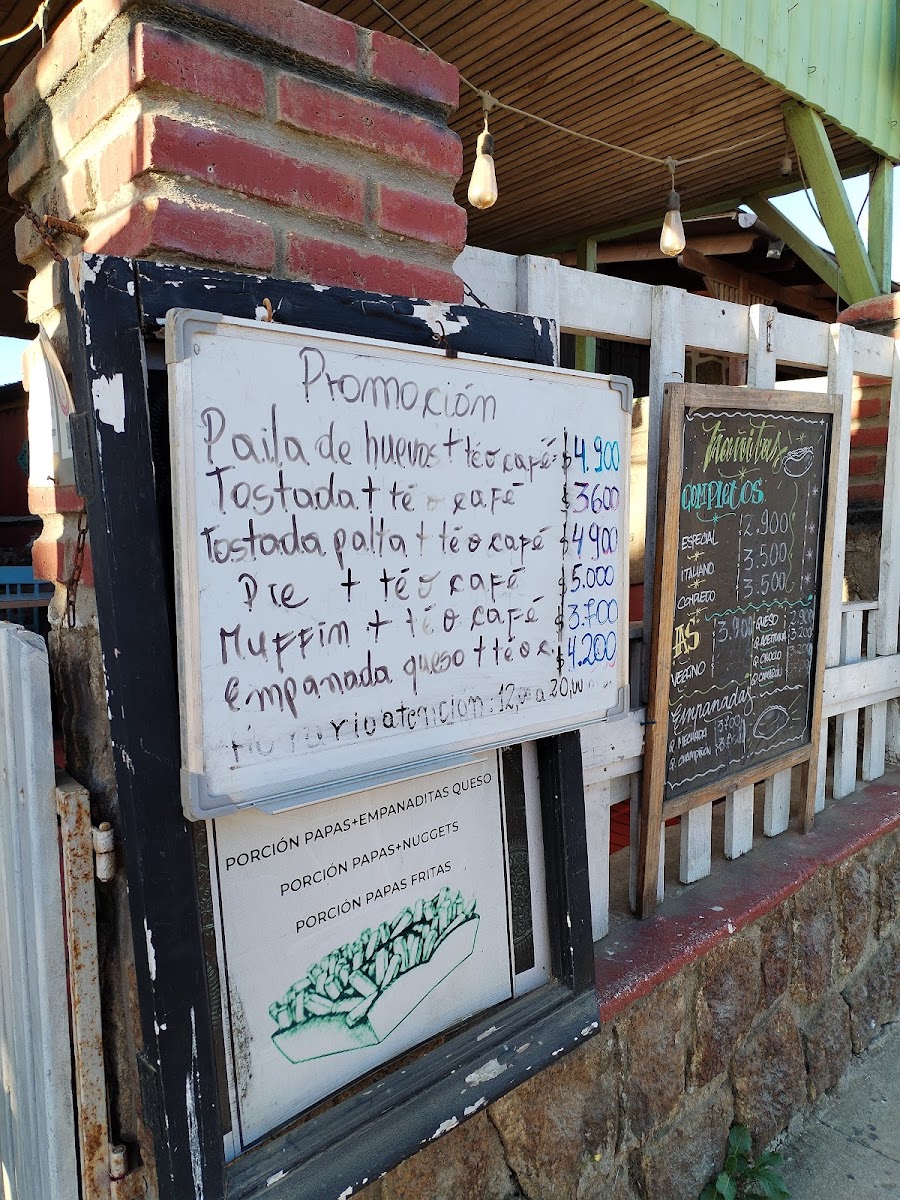 Promoción
Paila de huevos + té o café = $4.900
Tostada + té o café $3600
Tostada palta + té o café $4900
Pie + té o café $5.000
Muffim + té o café $3.700
empanada queso + té o c. $4.200
Horario atención: 12,00 a 20,00
PORCIÓN PAPAS+EMPANADITAS QUESO
PORCIÓN PAPAS+NUGGETS
PORCIÓN PAPAS FRITAS
Ñañitas
COMPLETOS
ESPECIAL 2.900
ITALIANO 3.500
COMPLETO 3.500
AS 3.900
VEGINO
QUESO 2.900
Q. ACEITUNA 3.200
Q. CHOCLO
Empanadas
Q. MECHADA 3.700
Q. CHAMPIÑON